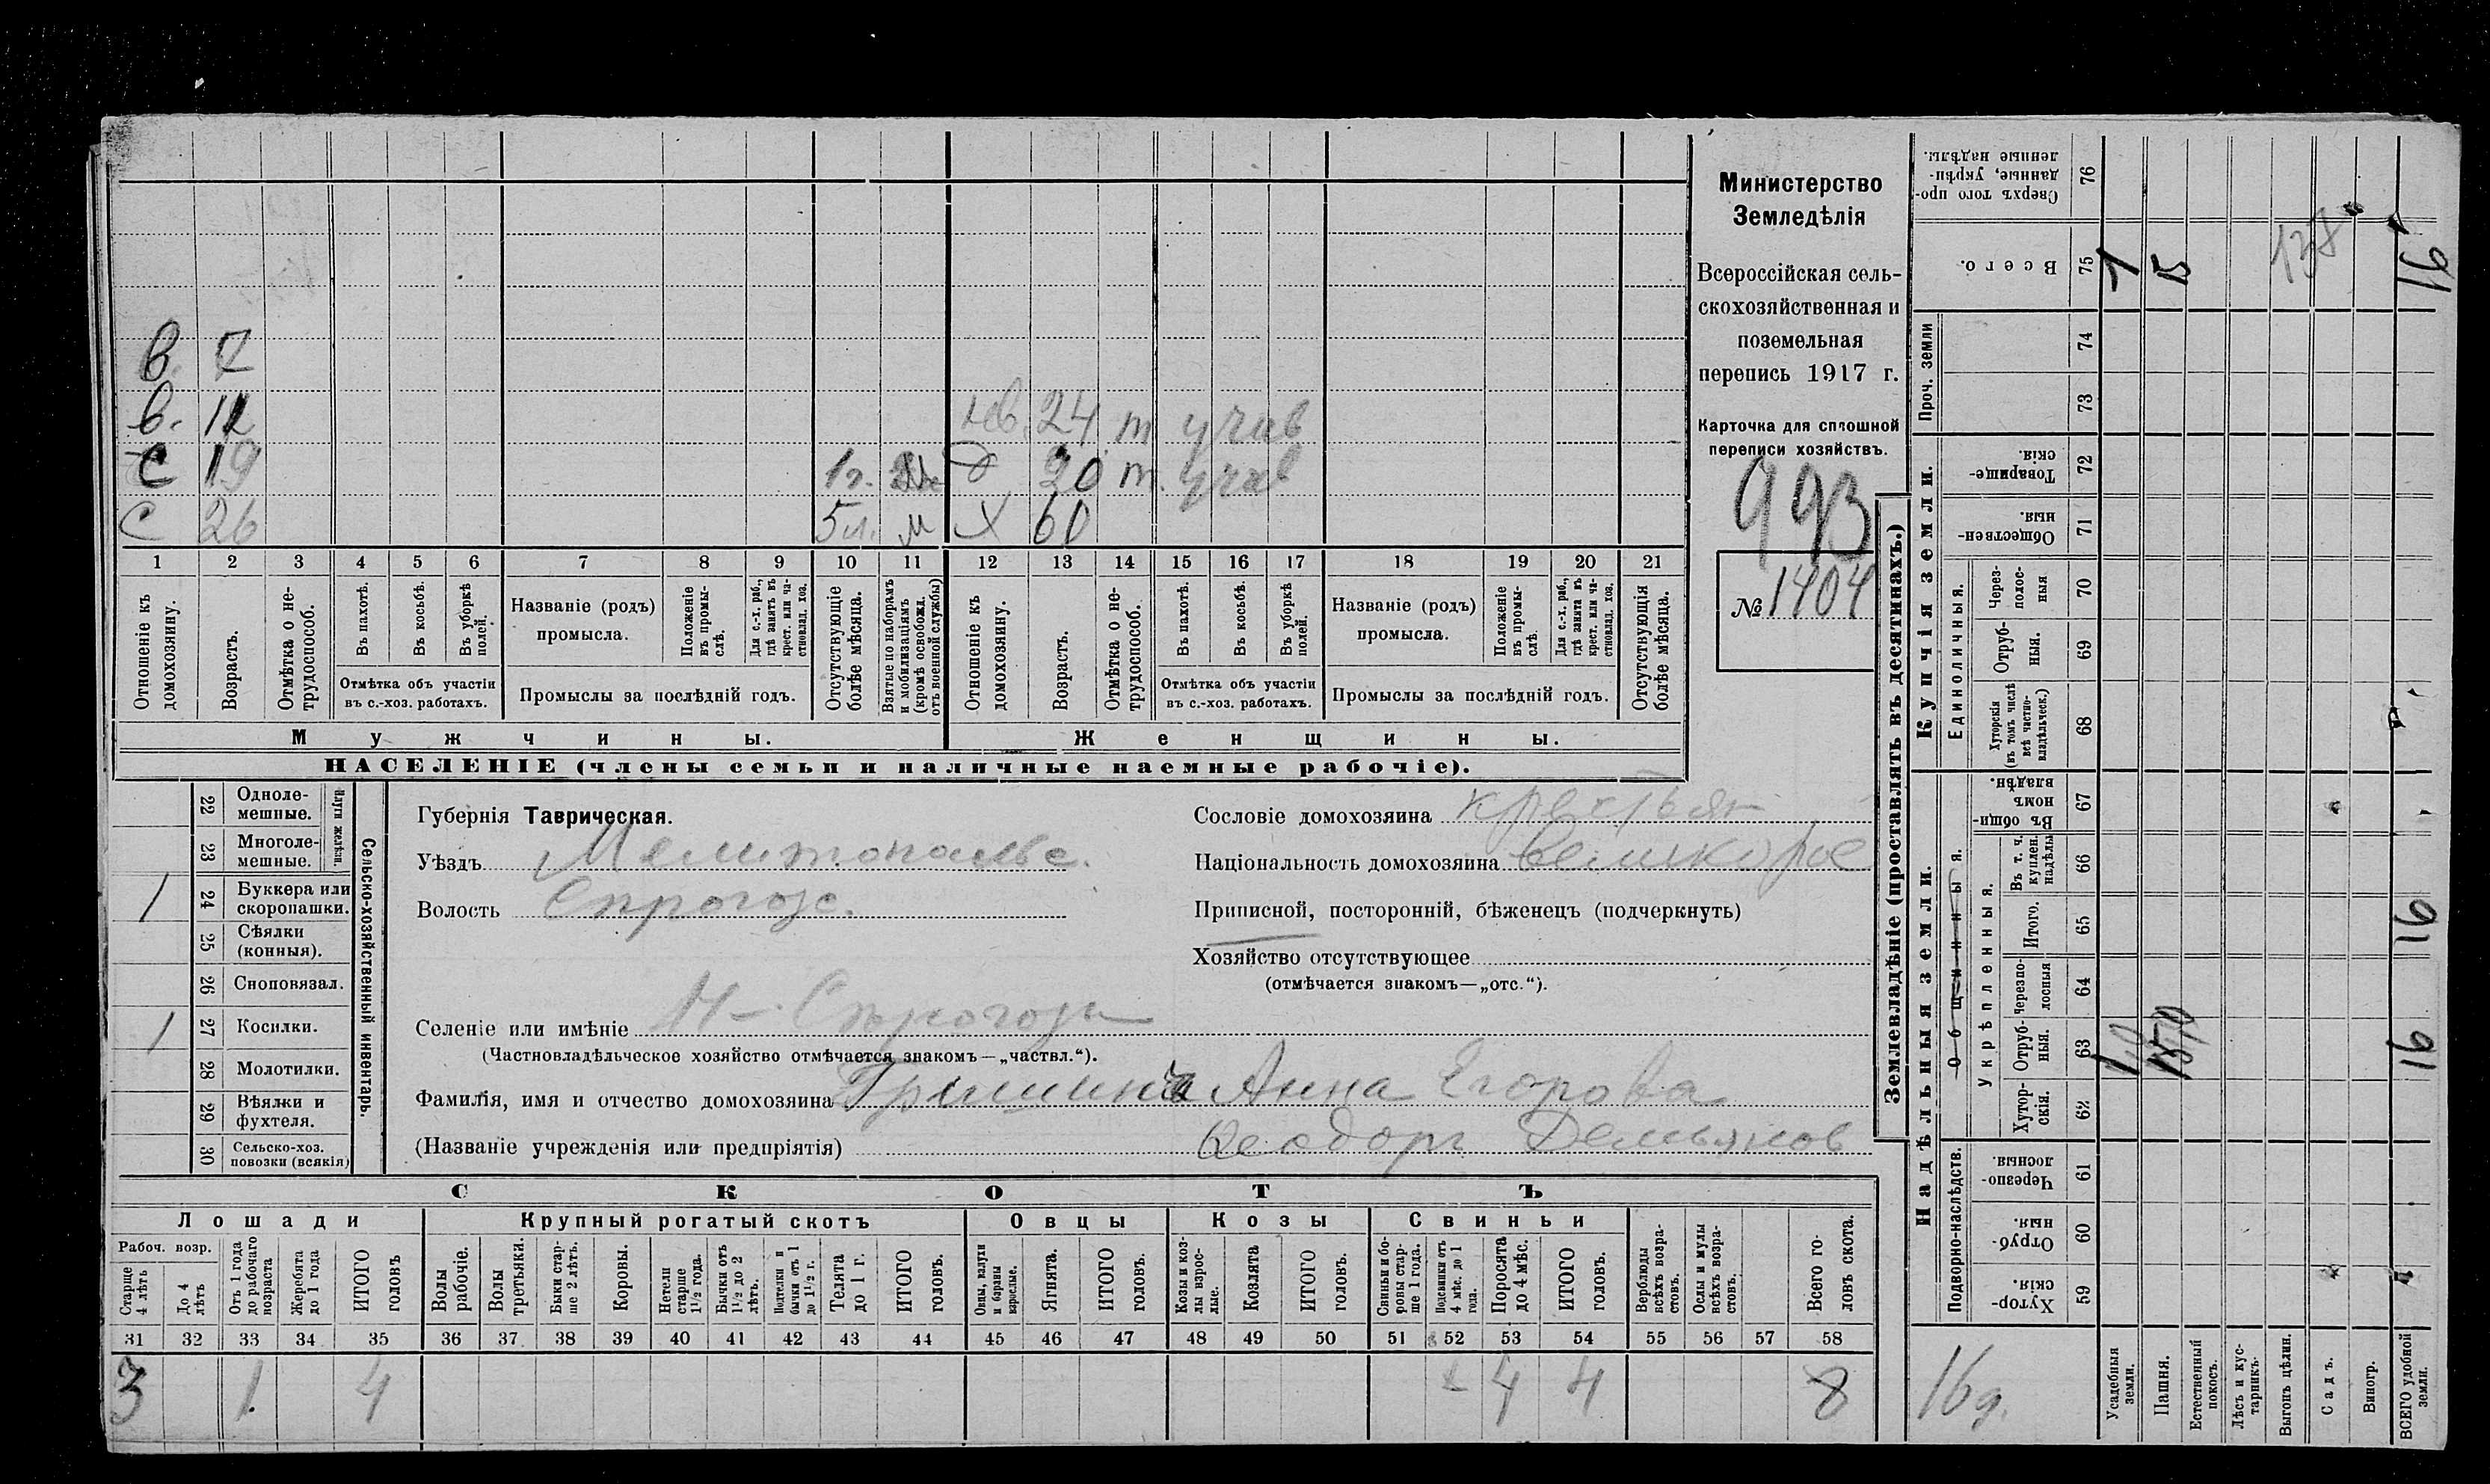 в. 7
в. 12
С 19 1г. нев. 24 т учав
С 26 5л. м д 20 т. учав
Х 60
1 2 3 4 5 6 7 8 9 10 11 12 13 14 15 16 17 18 19 20 21
Отношеніе къ домохозяину.
Возрастъ.
Отмѣтка о не-трудоспособ.
Въ пахотѣ.
Въ косьбѣ.
Въ уборкѣ полей.
Отмѣтка объ участіи въ с.-хоз. работахъ.
Названіе (родъ) промысла.
Положеніе въ промы-слѣ.
Для с.-х. раб., гдѣ занятъ въ крест. или ча-стновлад. хоз.
Промыслы за послѣдній годъ.
Отсутствующіе болѣе мѣсяца.
Взятые по наборамъ и мобилизаціямъ (кромѣ освобожд. отъ военной службы)
Отношеніе къ домохозяину.
Возрастъ.
Отмѣтка о не-трудоспособ.
Въ пахотѣ.
Въ косьбѣ.
Въ уборкѣ полей.
Отмѣтка объ участіи въ с.-хоз. работахъ.
Названіе (родъ) промысла.
Положеніе въ промы-слѣ.
Для с.-х. раб., гдѣ занята въ крест. или ча-стновлад. хоз.
Промыслы за послѣдній годъ.
Отсутствующія болѣе мѣсяца.
Мужчины.
Женщины.
НАСЕЛЕНІЕ (члены семьи и наличные наемные рабочіе).
Министерство
Земледѣлія
Всероссійская сель-
скохозяйственная и
поземельная
перепись 1917 г.
Карточка для сплошной
переписи хозяйствъ.
993
№ 1404
22 Одноле-мешные.
23 Многоле-мешные.
Плуги желѣзн.
1 24 Буккера или скоропашки.
25 Сѣялки (конныя).
26 Сноповязал.
1 27 Косилки.
28 Молотилки.
29 Вѣялки и фухтеля.
30 Сельско-хоз. повозки (всякія)
Сельско-хозяйственный инвентарь.
Губернія Таврическая.
Уѣздъ Мелитопольс.
Волость Сирогоз.
Селеніе или имѣніе Н-Сирогозы
(Частновладѣльческое хозяйство отмѣчается знакомъ—„частвл.“).
Фамилія, имя и отчество домохозяина Гришина Анна Егорова
(Названіе учрежденія или предпріятія) Ѳеодоръ Демьянов
Сословіе домохозяина крестьян
Національность домохозяина великорос
Приписной, посторонній, бѣженецъ (подчеркнуть)
Хозяйство отсутствующее
(отмѣчается знакомъ—„отс.“).
СКОТЪ
Лошади
Крупный рогатый скотъ
Овцы
Козы
Свиньи
Рабоч. возр.
Старше 4 лѣтъ
До 4 лѣтъ
Отъ 1 года до рабочаго возраста
Жеребята до 1 года
ИТОГО головъ
Волы рабочіе.
Волы третьяки.
Быки стар-ше 2 лѣтъ.
Коровы.
Нетели старше 1½ года.
Бычки отъ 1½ до 2 лѣтъ.
Подтелки и бычки отъ 1 до 1½ г.
Телята до 1 г.
ИТОГО головъ.
Овцы, валухи и бараны взрослые.
Ягнята.
ИТОГО головъ.
Козы и коз-лы взрос-лые.
Козлята
ИТОГО головъ.
Свиньи и бо-ровы стар-ше 1 года.
Подсвинки отъ 4 мѣс. до 1 года.
Поросята до 4 мѣс.
ИТОГО головъ.
Верблюды всѣхъ возра-стовъ.
Ослы и мулы всѣхъ возра-стовъ.
Всего го-ловъ скота.
31 32 33 34 35 36 37 38 39 40 41 42 43 44 45 46 47 48 49 50 51 52 53 54 55 56 57 58
3 1 4 4 4 8
Землевладѣніе (проставлять въ десятинахъ.)
Надѣльныя земли.
Купчія земли.
Проч. земли
Подворно-наслѣдств.
Общинныя.
Укрѣпленныя.
Единоличныя.
Сверхъ того про-данные, укрѣп-ленные надѣлы. 76
Всего. 75 1 15 138 16
74
73
Товарище-скія. 72
Обществен-ныя. 71
Через-полос-ныя 70
Отруб-ныя. 69
Хуторскія (въ томъ числѣ всѣ частно-владѣльческ.) 68
Въ общин-номъ владѣн. 67
Въ т. ч. куплен. надѣлы 66
Итого. 65 16
Черезпо-лосныя 64
Отруб-ныя. 63 16
Хутор-скія. 62
Черезпо-лосныя. 61
Отруб-ныя. 60
Хутор-скія. 59
16 д.
Усадебныя земли.
Пашня.
Естественный покосъ.
Лѣсъ и кус-тарникъ.
Выгонъ цѣлин.
Садъ.
Виногр.
ВСЕГО удобной земли.